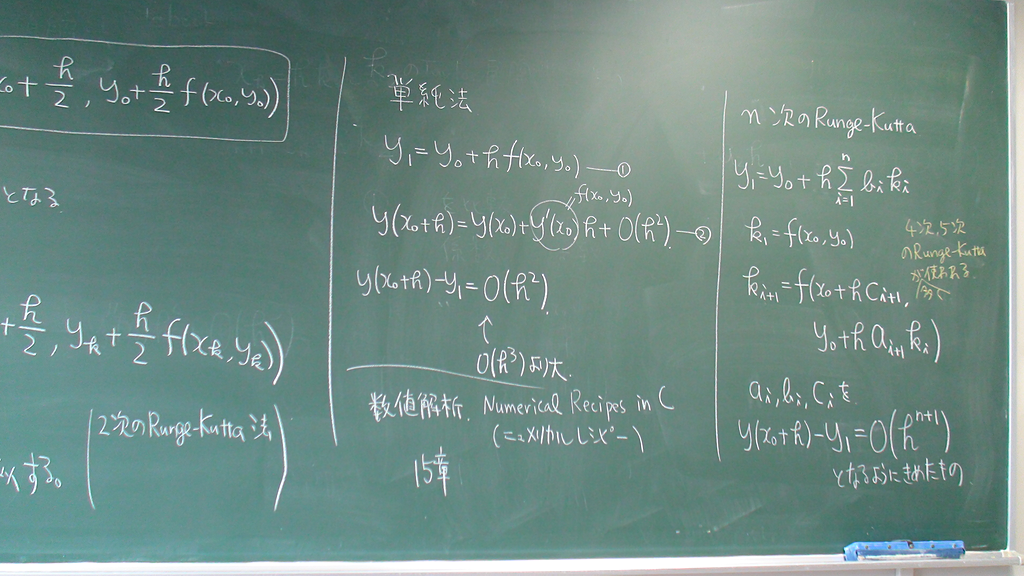 x₀+h/2, y₀+h/2 f(x₀,y₀))
となる
+h/2, yₖ+h/2 f(xₖ,yₖ))
する。
2次のRunge-Kutta法
単純法
y₁=y₀+hf(x₀,y₀) ―①
f(x₀,y₀)
y(x₀+h)=y(x₀)+y'(x₀)h+O(h²). ―②
y(x₀+h)-y₁=O(h²).
↑
O(h³)より大.
数値解析. Numerical Recipes in C
(ニューメリカルレシピー)
15章
n次のRunge-Kutta
y₁=y₀+h∑ⁿᵢ₌₁ bᵢkᵢ
k₁=f(x₀,y₀)
kᵢ₊₁=f(x₀+hcᵢ₊₁,
y₀+haᵢ₊₁kᵢ)
4次,5次
のRunge-Kutta
が使われる
aᵢ,bᵢ,cᵢを
y(x₀+h)-y₁=O(hⁿ⁺¹)
となるようにきめたもの